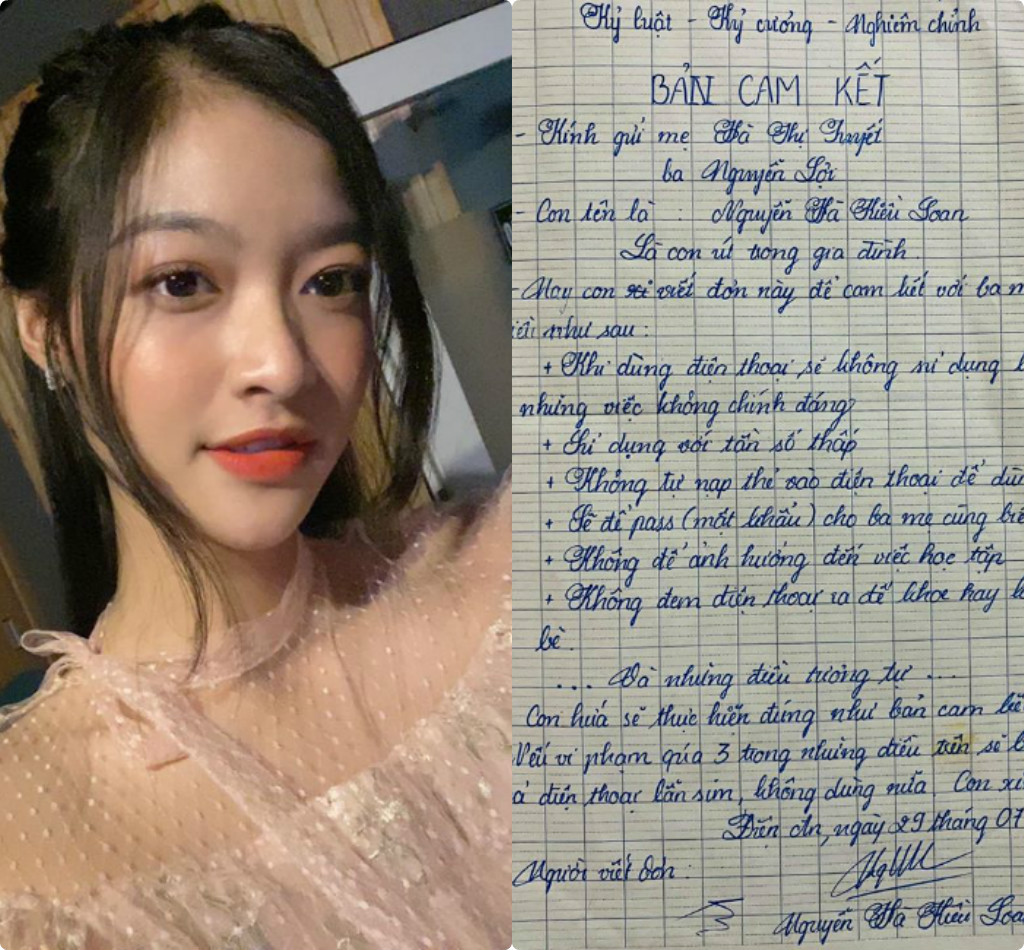 Kỷ luật - Kỷ cương - Nghiêm chỉnh
BẢN CAM KẾT
- Kính gửi mẹ Hà Thị Tuyết
ba Nguyễn Lợi
- Con tên là : Nguyễn Hà Kiều Loan
Là con út trong gia đình.
- Nay con viết đơn này để cam kết với ba m
như sau :
+ Khi dùng điện thoại sẽ không sử dụng
những việc không chính đáng
+ Sử dụng với tần số thấp
+ Không tự nạp thẻ vào điện thoại để dù
+ Sẽ để pass (mật khẩu) cho ba mẹ cùng biế
+ Không để ảnh hưởng đến việc học tập
+ Không đem điện thoại ra để khoe hay
bè.
... Và những điều tương tự ...
Con hứa sẽ thực hiện đúng như bản cam kế
Nếu vi phạm qúa 3 trong những điều trên sẽ
điện thoại lẫn sim, không dùng nữa. Con xi
Điện An, ngày 29 tháng 07
Người viết đơn :
Nguyễn Hà Kiều Loan